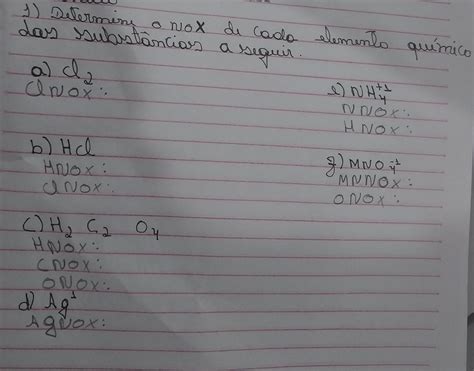 1) Determine o NOX de cada elemento químico
das substâncias a seguir.
a) Cl2
Cl NOX:
b) HCl
H NOX:
Cl NOX:
C) H2 C2 O4
H NOX:
C NOX:
O NOX:
d) Ag1
Ag NOX:
e) NH4+1
N NOX:
H NOX:
g) MNO4-1
MN NOX:
O NOX: